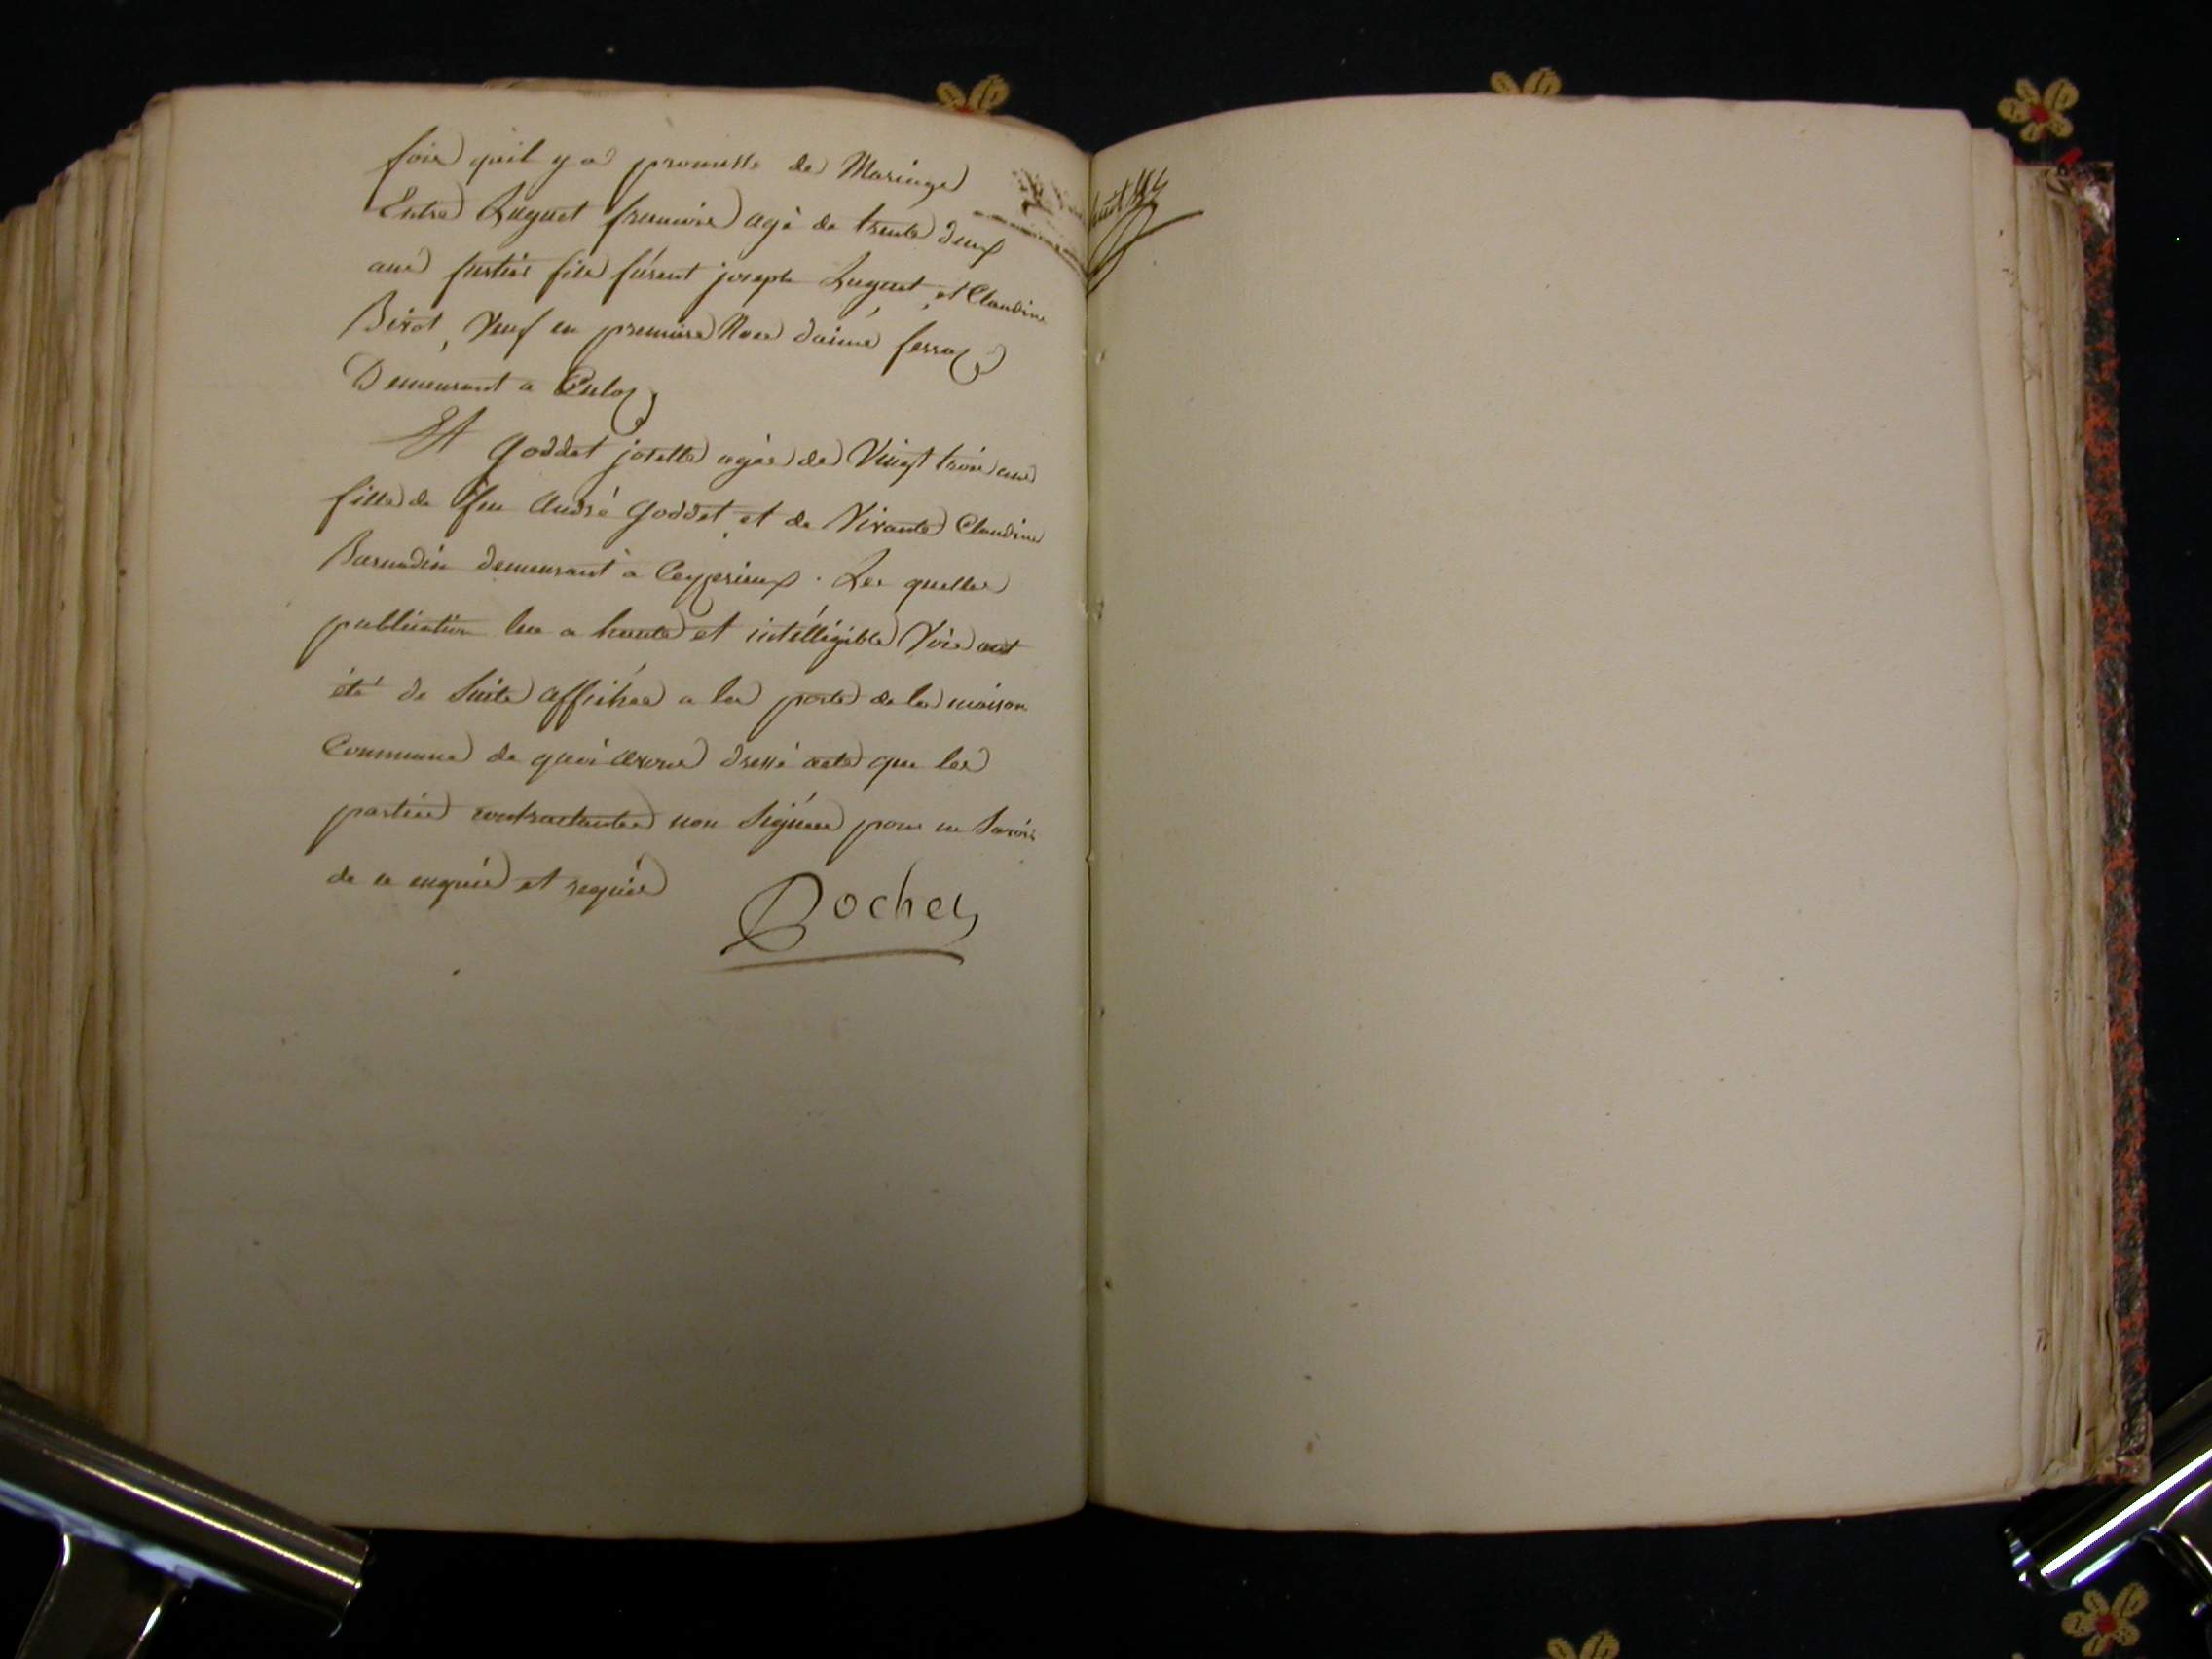 fois qu'il y a promesse de Mariage
Entre Luguet francois agé de trente deux
ans sustier fils fûrent joseph Luguet, et Claudine
Birot, Veuf en premiere Noce d'aimé ferraz
Demeurant a Culoz
Et Goddet josette agée de Vingt trois ans
fille de feu André Goddet, et de Vivante Claudine
Barnadin demeurant à Ceyzerieux. Les quelles
publication lue a haute et intélligible Voix ont
été de Suite affichée a la porte de la maison
Commune de quoi avons dressé acte que les
parties contractantes non Signées pour ne Savoir
de ce enquis et requis
Rochet
huit